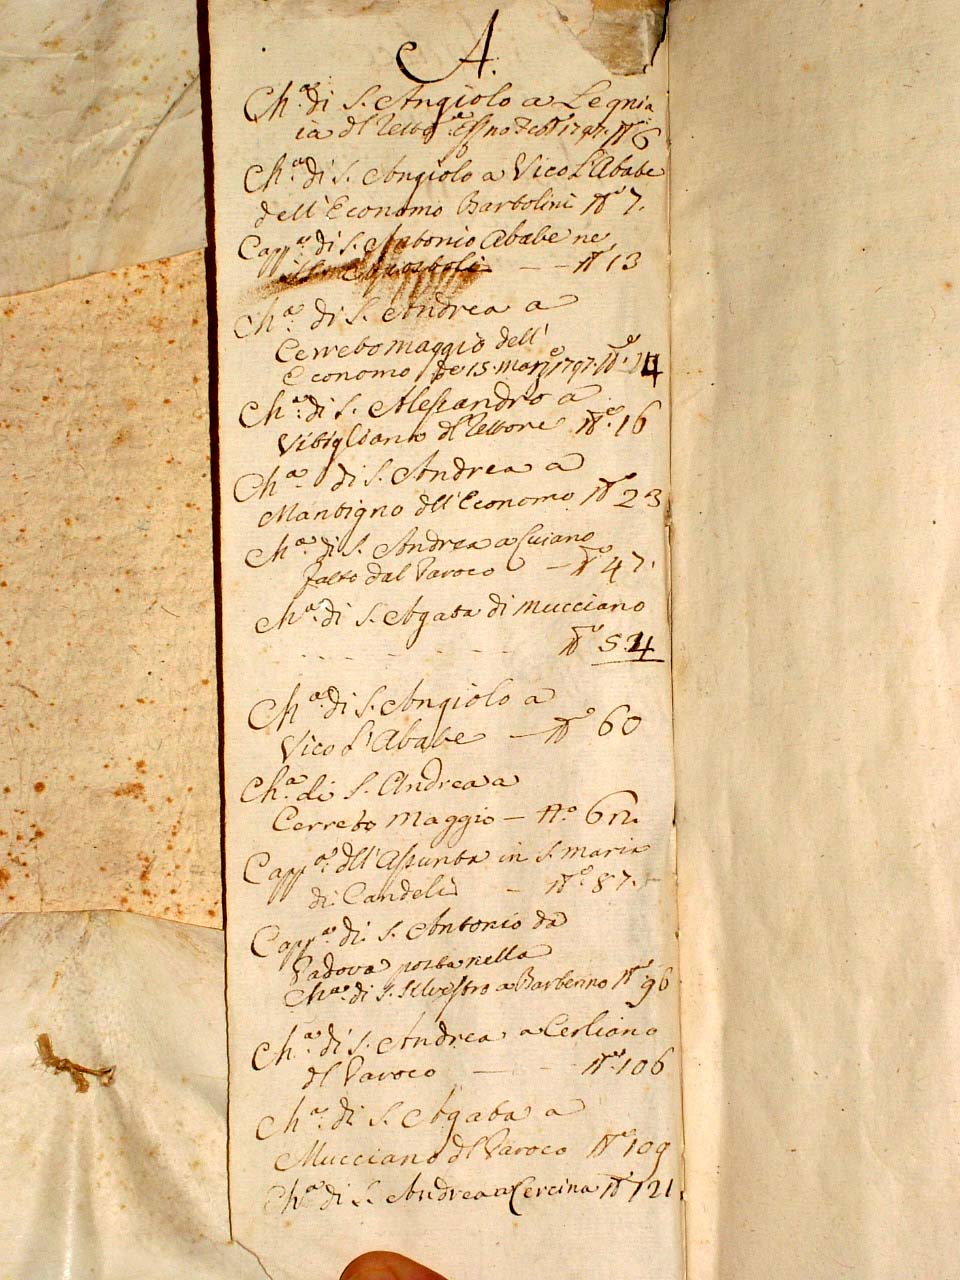 A.
Ch.ª di S. Angiolo a Legnia
ia dl Rettor.e 1797. N° 6
Ch.ª di S. Angiolo a Vico L'Abate
dell'Economo Bartolini N° 7.
Capp.ª di S. Antonio Abate ne
N° 13
Ch.ª di S. Andrea a
Cerretomaggio dell'
Economo de 15. Marzo 1797. N° 14
Ch.ª di S. Alessandro a
Vitigliano dl Rettore N° 16
Ch.ª di S. Andrea a
Mantigno dll'Economo N° 23
Ch.ª di S. Andrea a Cuiano
fatto dal Paroco — N° 47.
Ch.ª di S. Agata di Mucciano
N° 54
Ch.ª di S. Angiolo a
Vico L'Abate — N° 60
Ch.ª di S. Andrea a
Cerreto Maggio — N°.
Capp.ª dll'Assunta in S. Maria
di Candeli — N° 87.
Capp.ª di S. Antonio da
Padova posta nella
Ch.ª di S. Silvestro a Barberino N° 96
Ch.ª di S. Andrea a Cerliano
dl Paroco — N° 106
Ch.ª di S. Agata a
Mucciano dl Paroco N° 109
Ch.ª di S. Andrea a Cercina N° 121